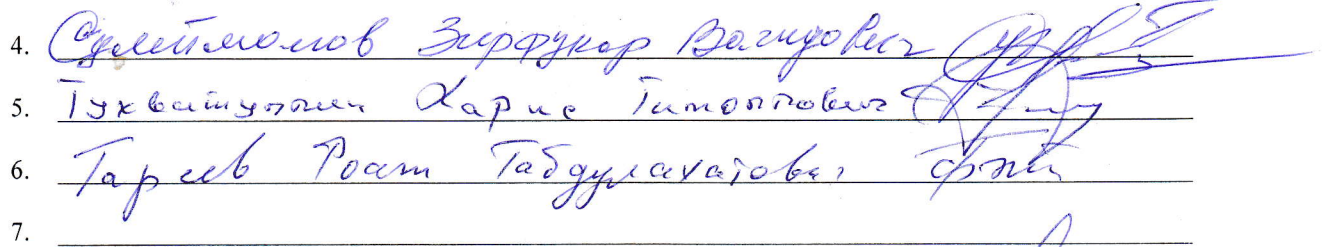 4. Сулейманов Зирфукар Вагидович
5. Тухватуллин Харис
6. Гареев Габдулахатович
7.